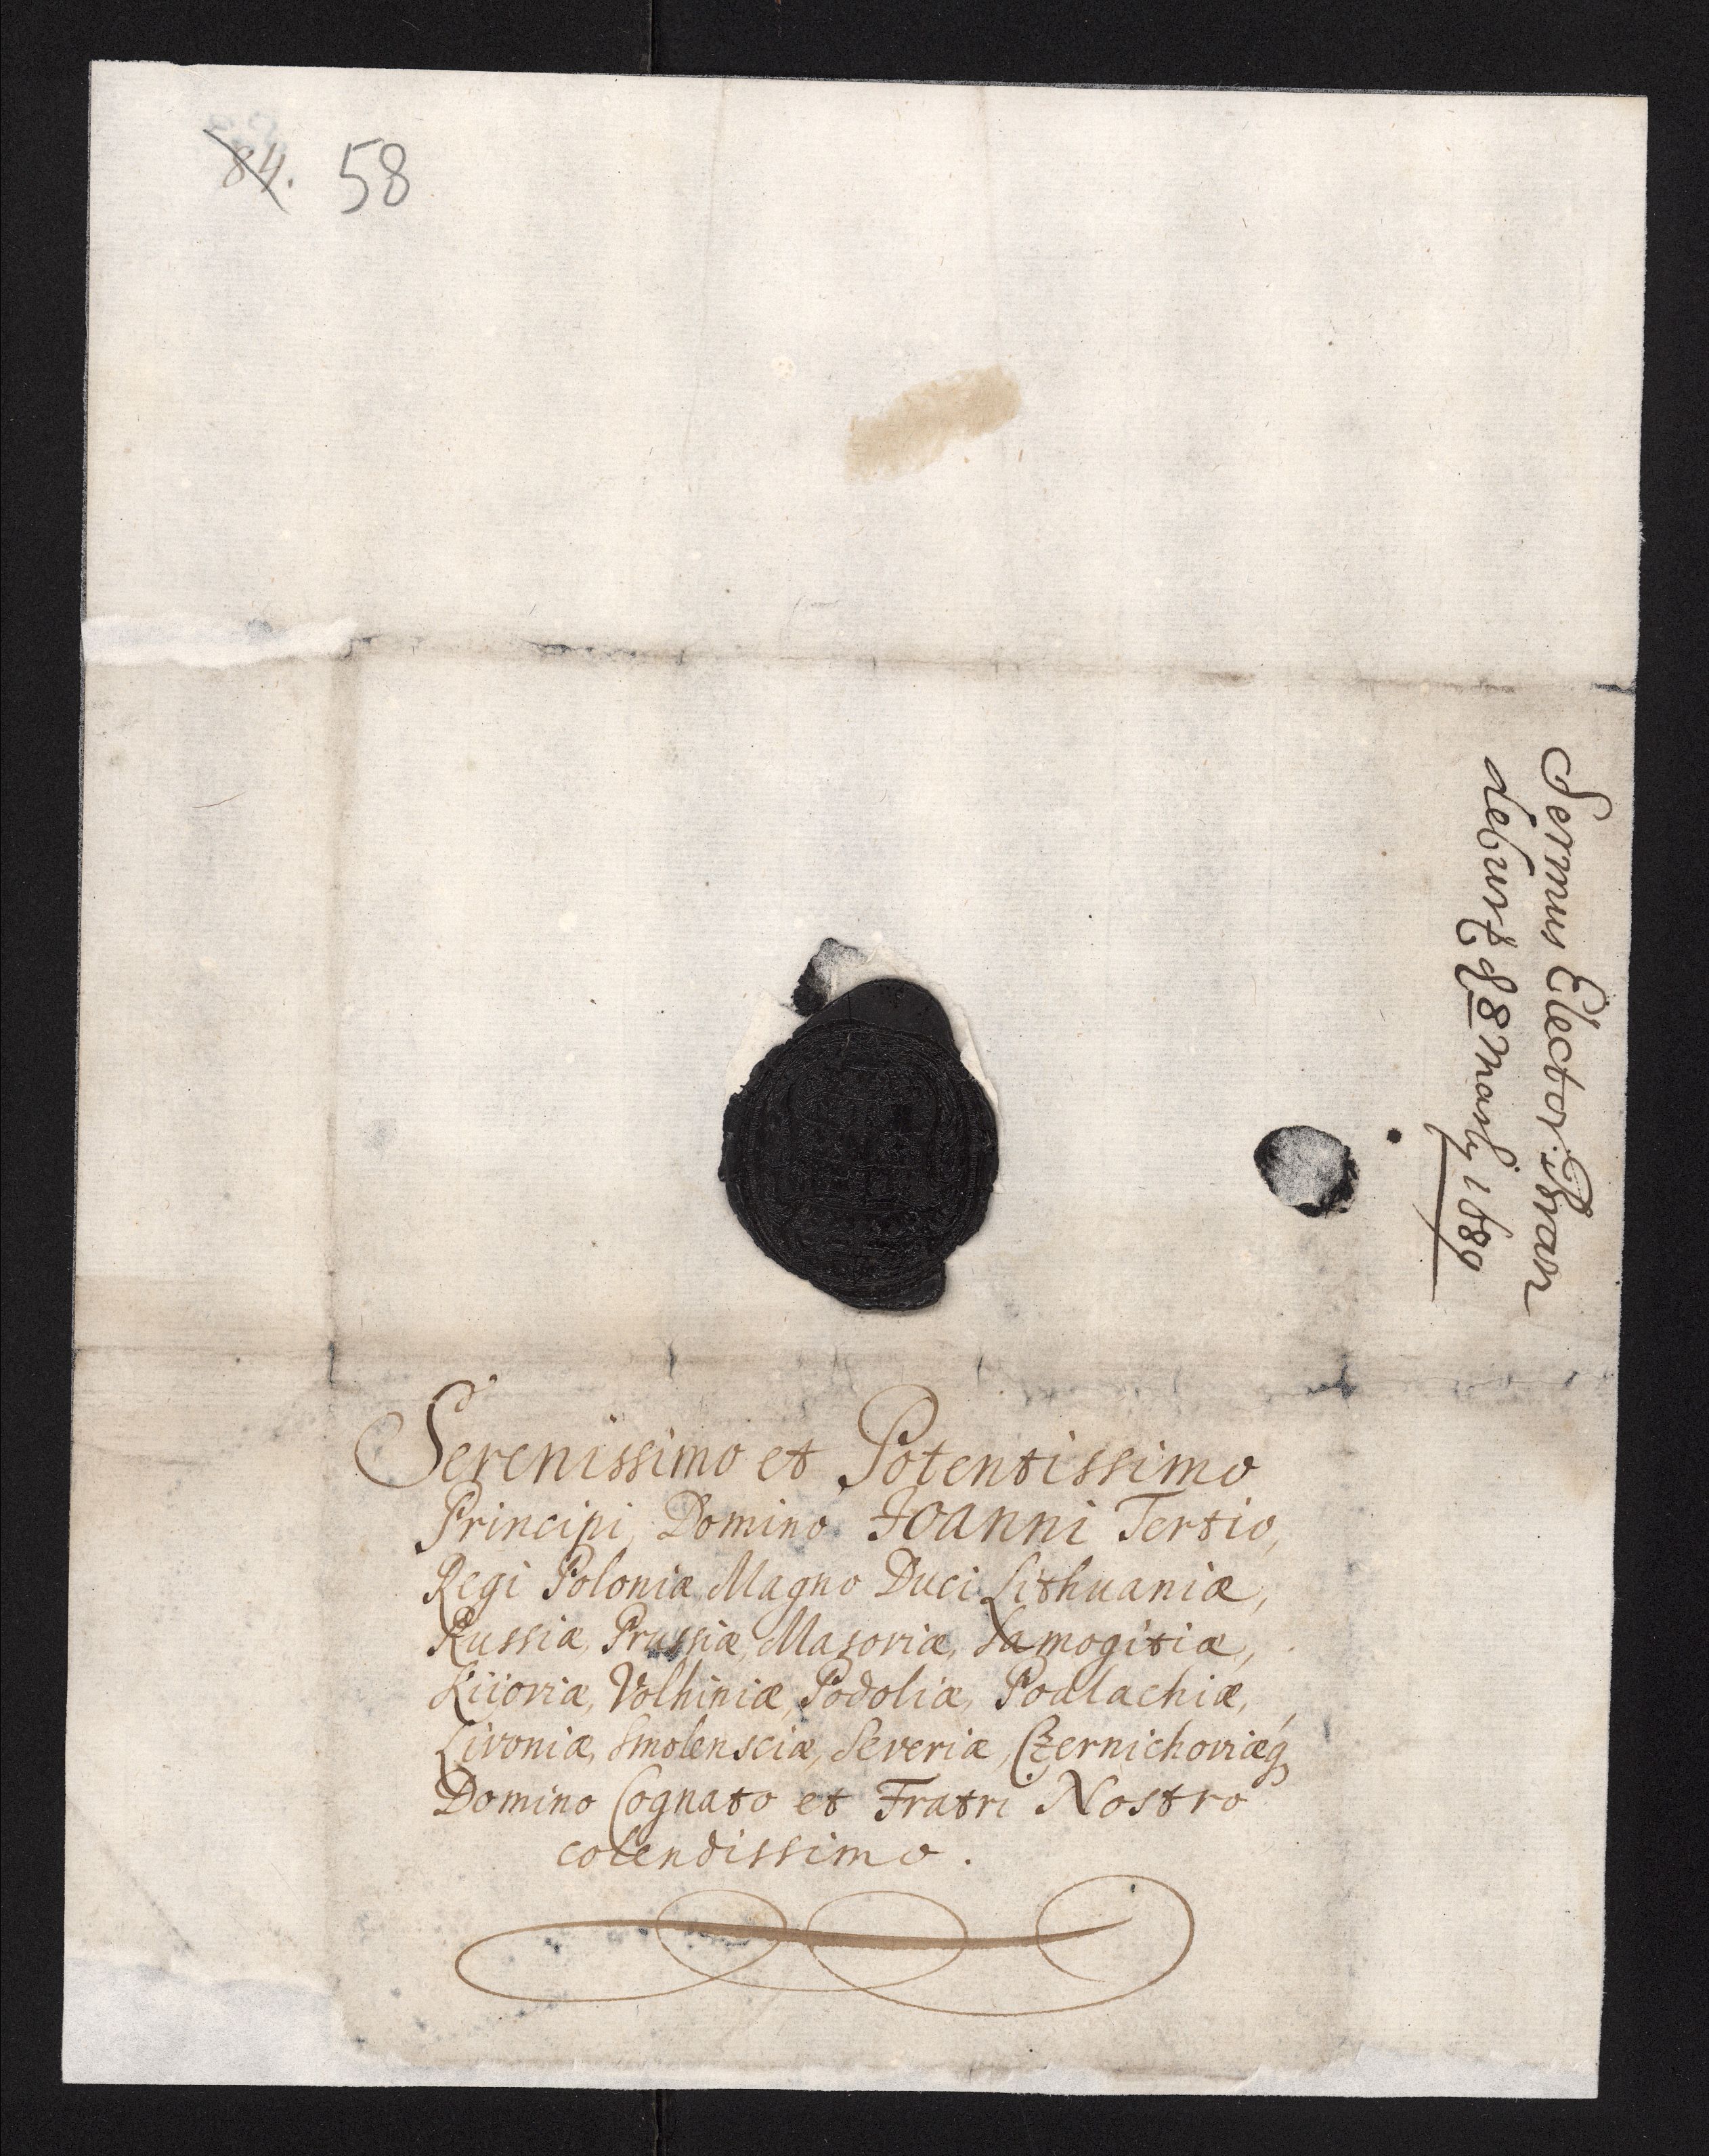 84. 58
Sermus Elector: Bran
deburg d 8 Martij 1689
Serenissimo et Potentissimo
Principi, Domino Joanni Tertio,
Regi Poloniæ, Magno Duci Lithuaniæ,
Russiæ, Prussiæ, Masoviæ, Samogitiæ,
Kiioviæ, Volhiniæ, Podoliæ, Podlachiæ,
Livoniæ, Smolensciæ, Severiæ, Czernichoviæq́
Domino Cognato et Fratri Nostro
colendissimo.